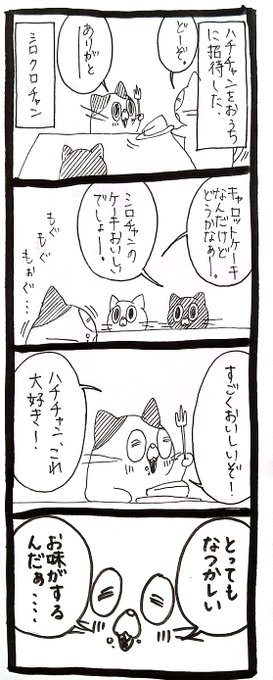 ハチチャンをおうち
に招待した、
シロクロチャン
どーぞ。
ありがと
キャロットケーキ
なんだけど
どうかなぁー。
シロチャンの
ケーキおいしい
でしょー。
もぐ
もぐ
もぉぐ…
すごくおいしいぞー!
ハチチャン、これ
大好き!
とっても
なつかしい
お味がする
んだぁ....